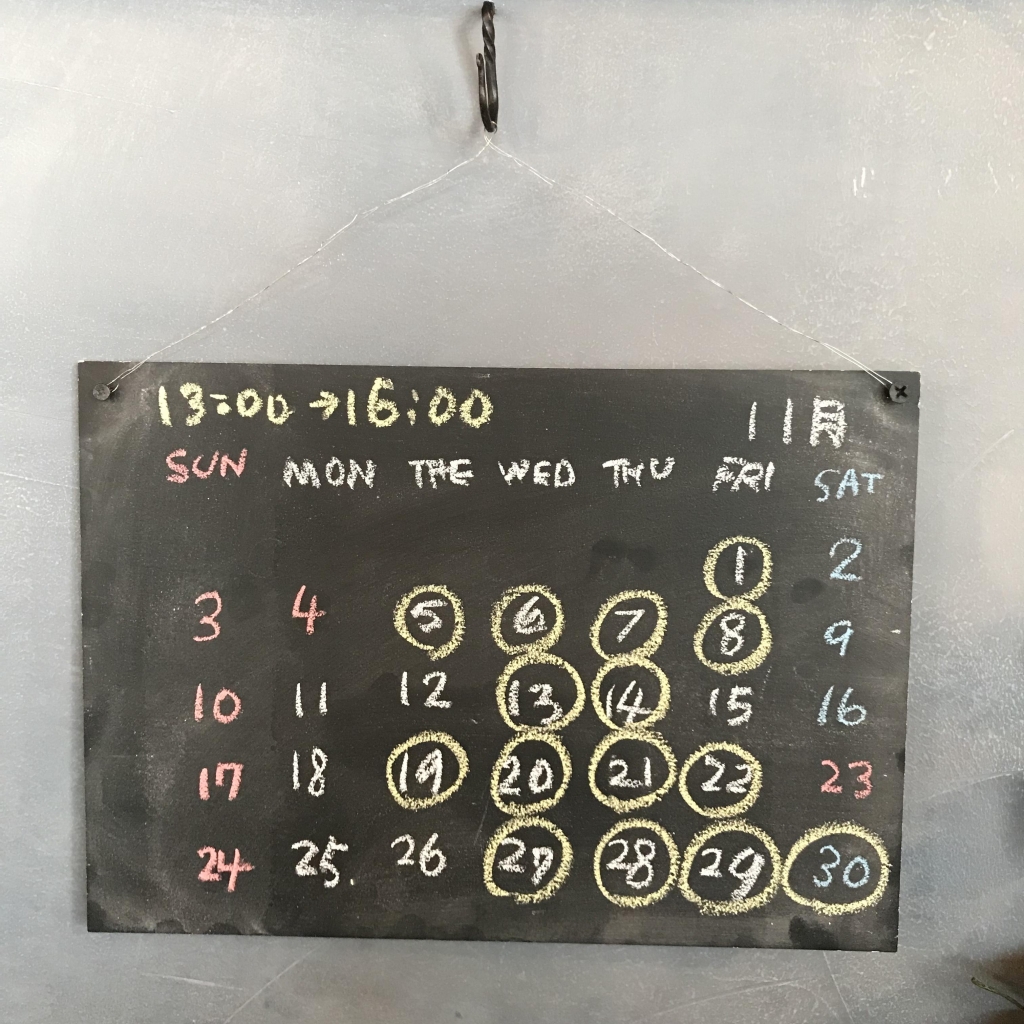 13:00→16:00 11月
SUN MON THE WED THU FRI SAT
1 2
3 4 5 6 7 8 9
10 11 12 13 14 15 16
17 18 19 20 21 22 23
24 25. 26 27 28 29 30